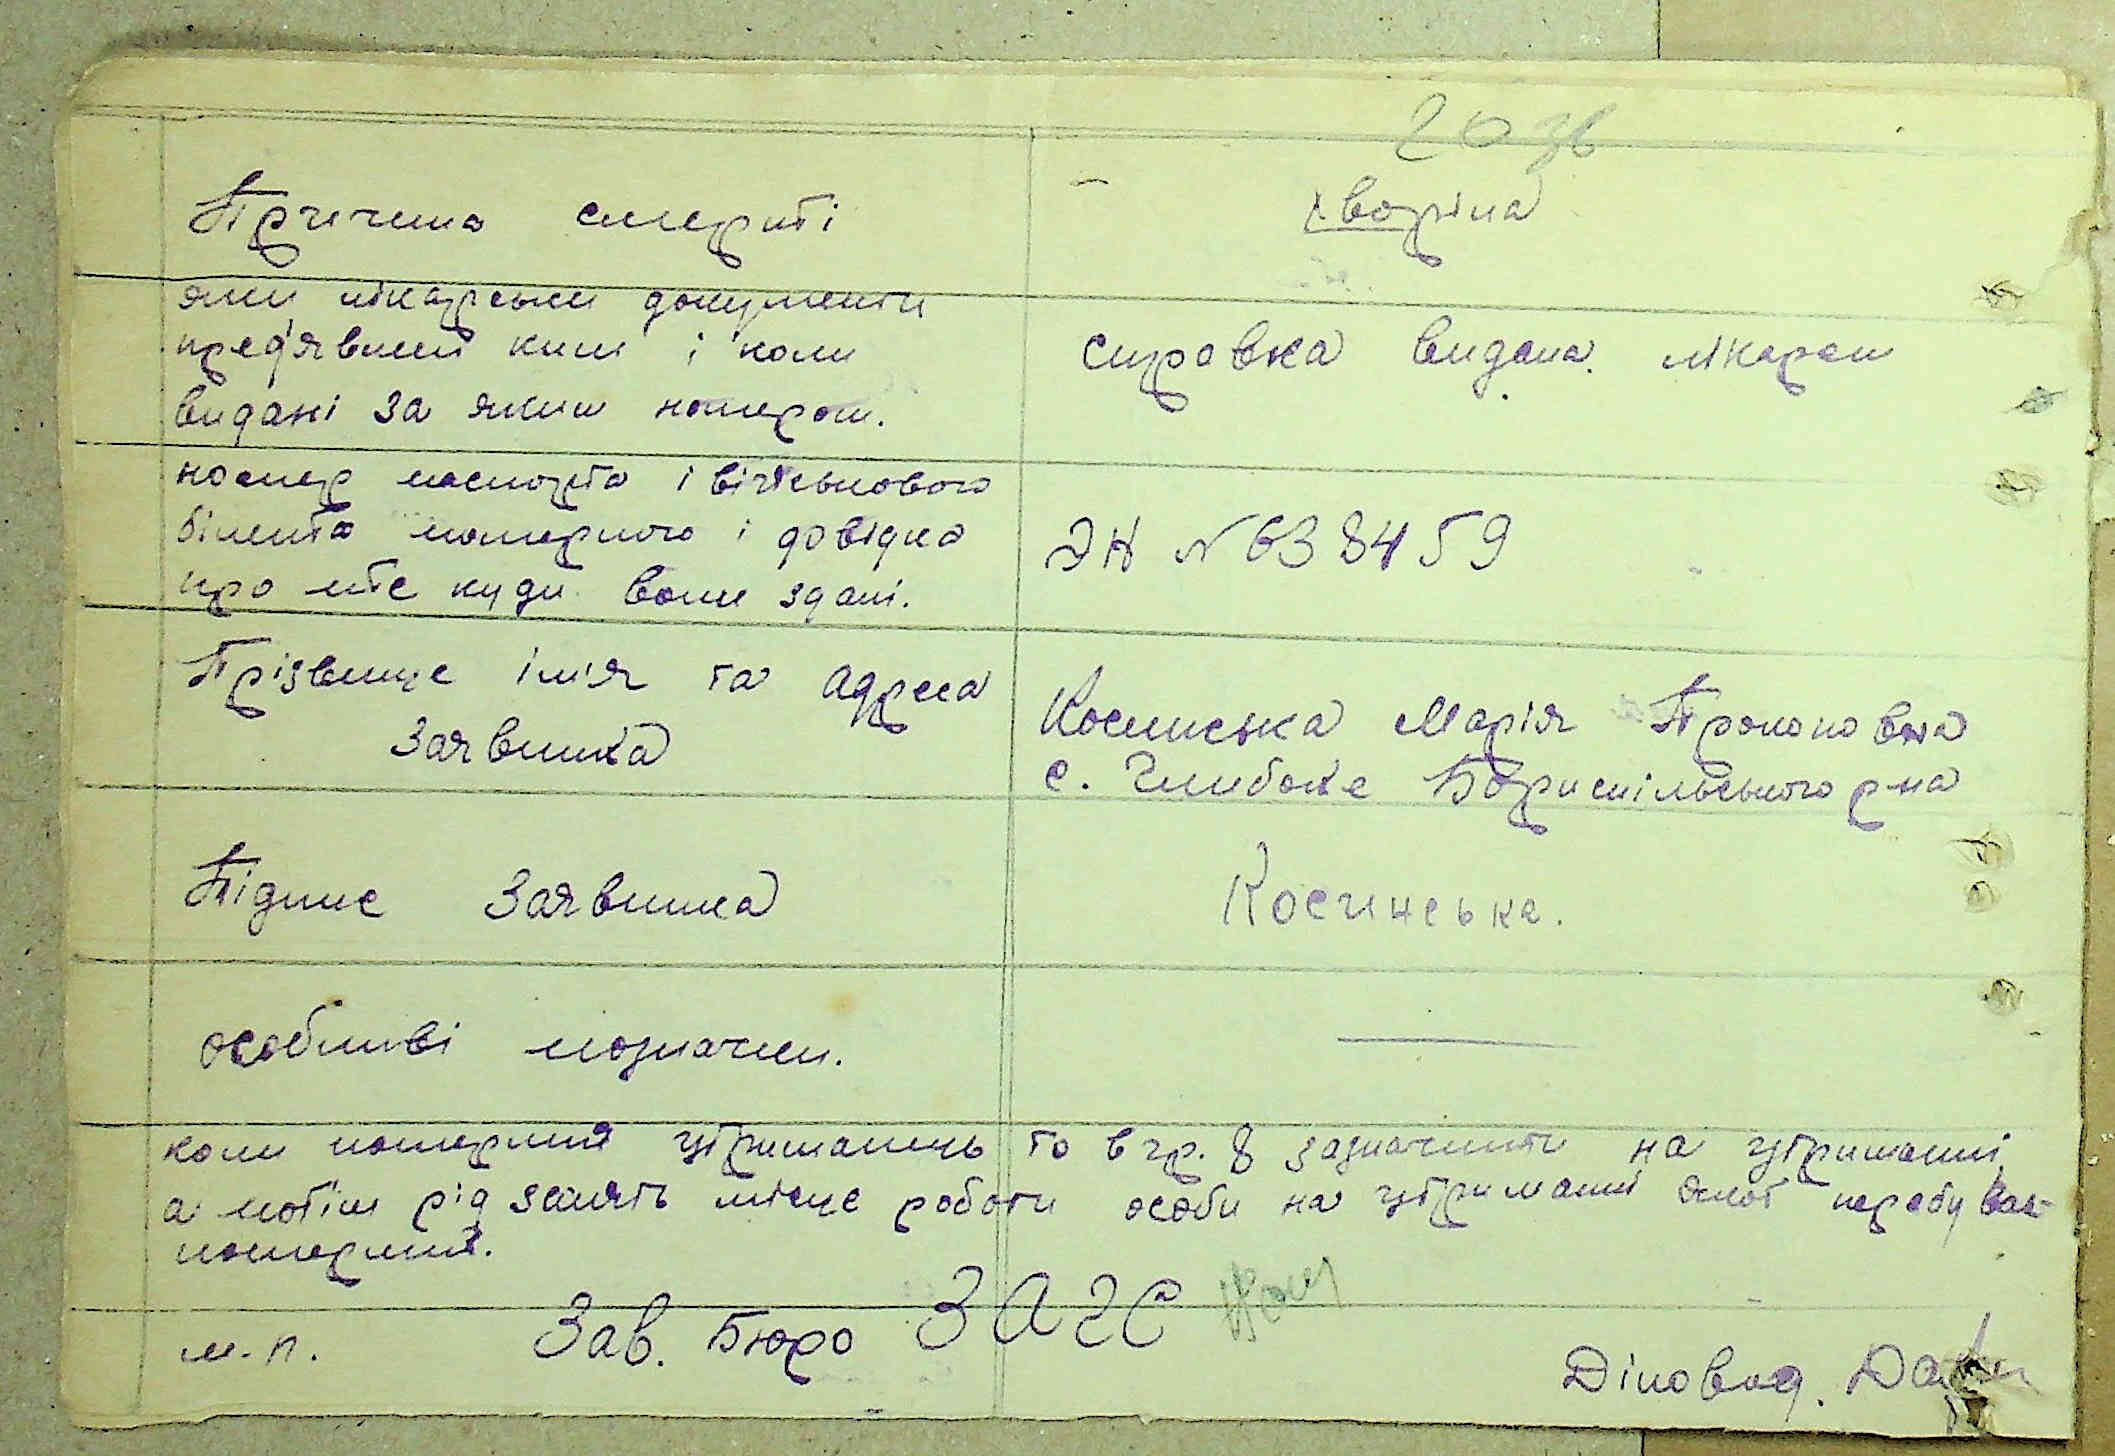 20 зв
Причина смерті
хворіла
яки лікарськи документи
пред'явлени ким і коли
видані за яким номером.
справка видана лікарем
номер паспорта і військового
білета померлого і довідка
про те куди вони здані.
ЭН №638459
Прізвище ім'я та адреса
Заявника
Косинська Марія Прокоповна
с. Глибоке Бориспільського р-на
Підпис Заявника
Косинська.
особливі позначки.
коли померлий утриманець то в гр. 8 зазначити на утриманні
а потім рід занять місце роботи особи на утриманні якої перебував
померлий.
м.п. Зав. Бюро ЗАГС
Діловод.